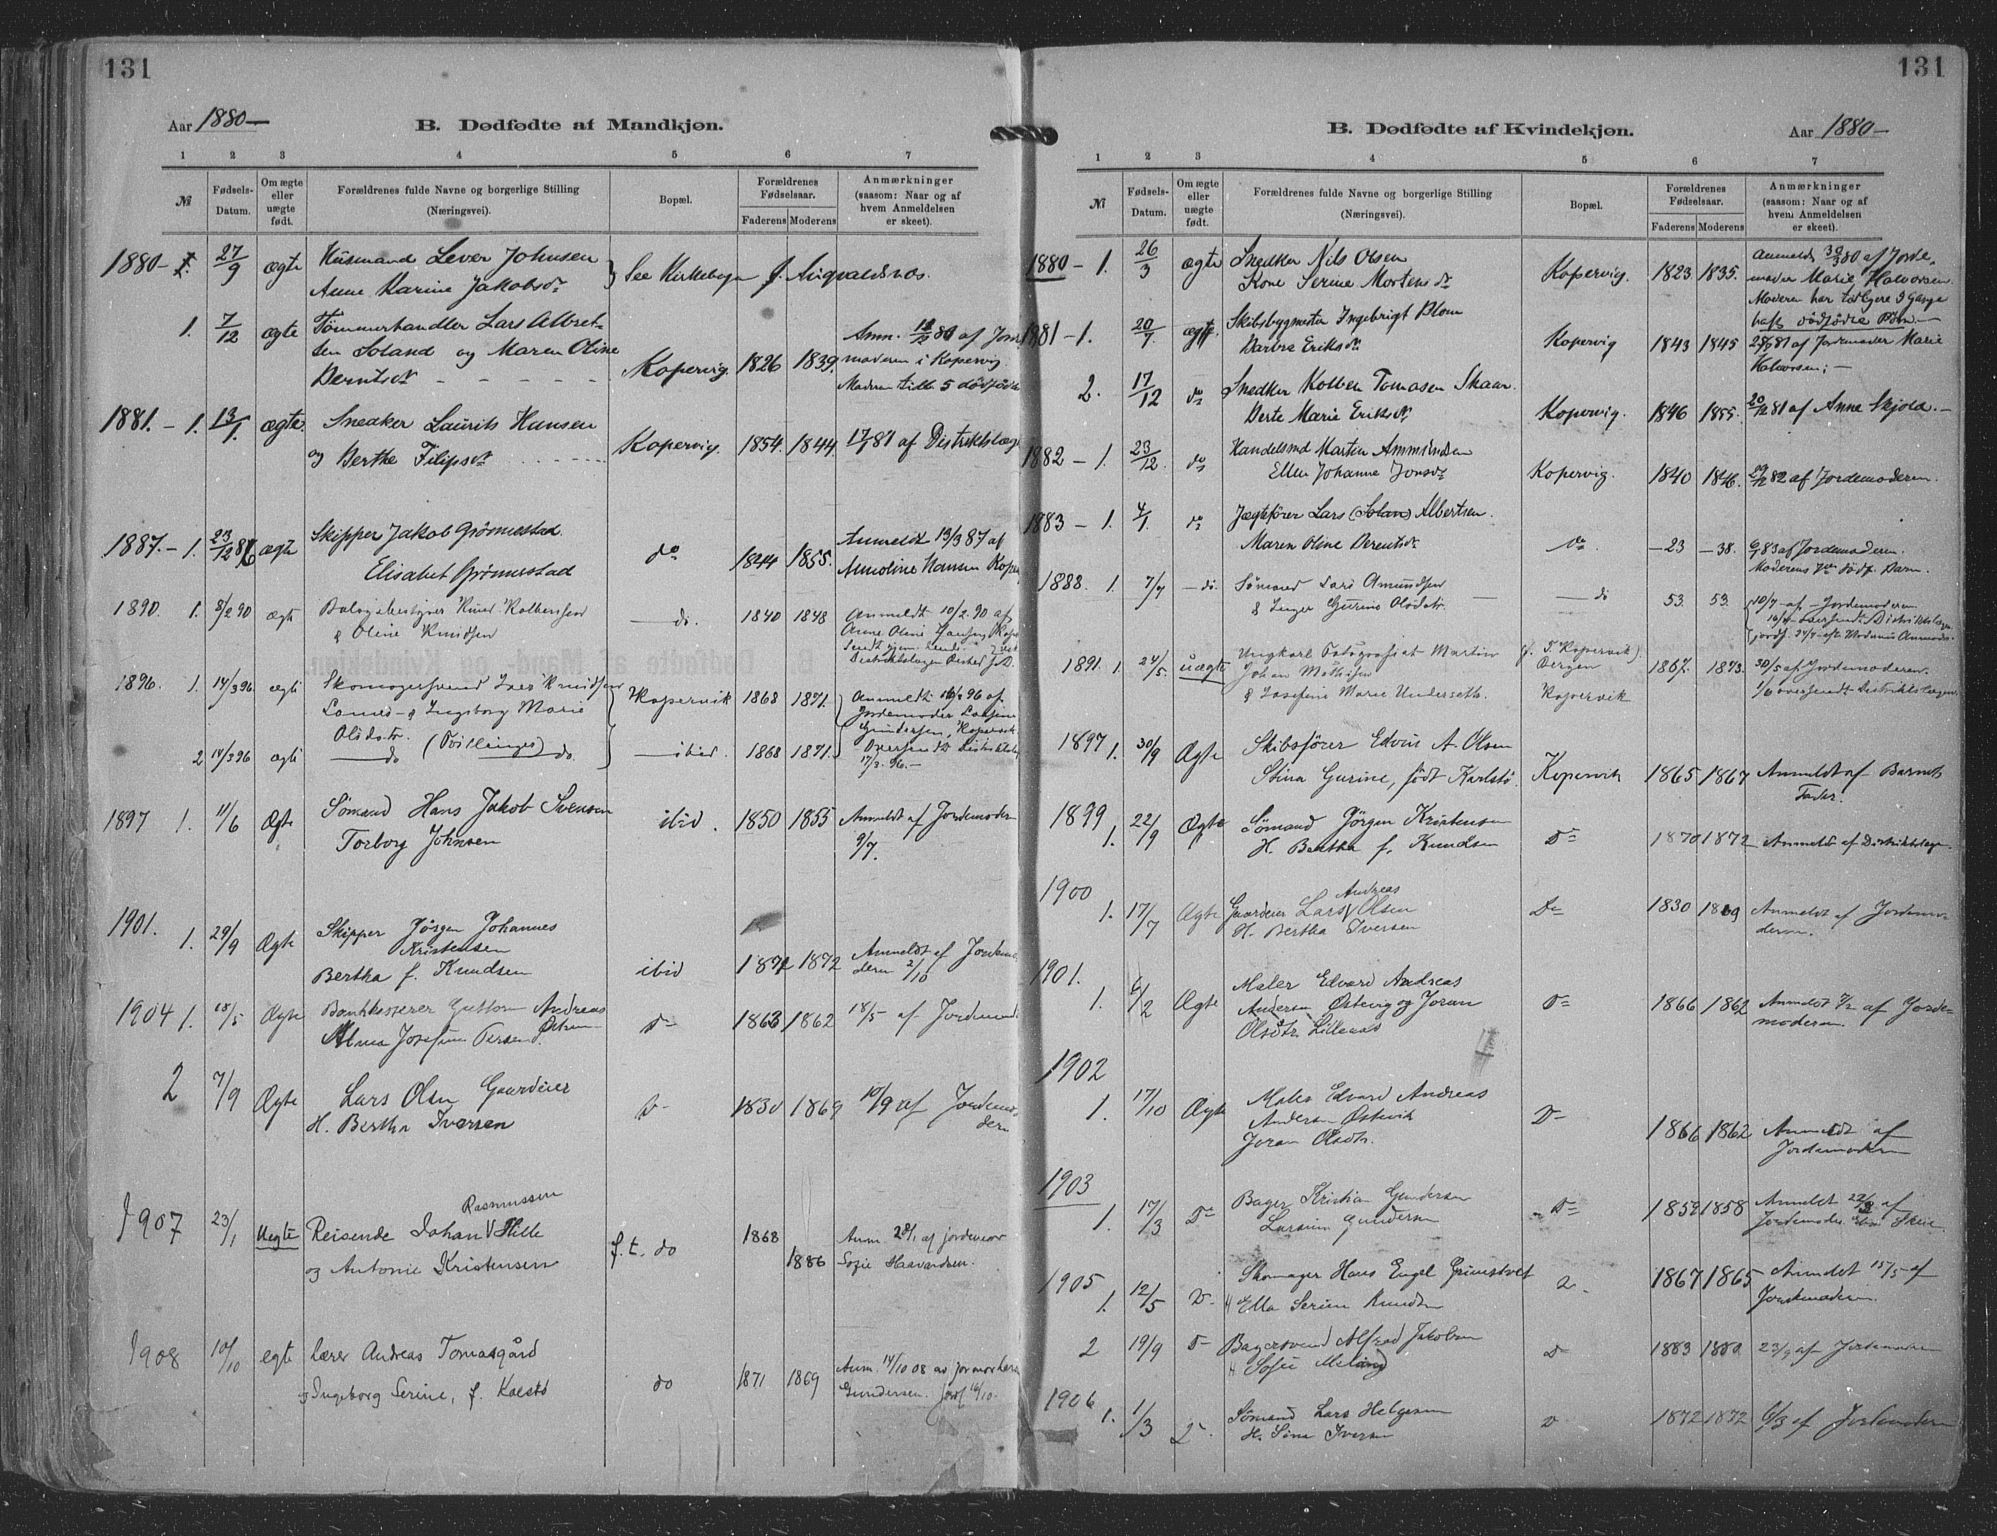 131
Aar 1880–
B. Dødfødte af Mandkjøn.
1 2 3 4 5 6 7
№
Fødsels-
Datum.
Om ægte
eller
uægte
født.
Forældrenes fulde Navne og borgerlige Stilling
(Næringsvei).
Bopæl.
Forældrenes
Fødselsaar.
Faderens Moderens
Anmærkninger
(saasom: Naar og af
hvem Anmeldelsen
er skeet).
1880– 27/9 ægte Husmand Johnsen
Anne Karine Jakobsdr See Kirkebogen f. Augvaldsnæs.
1. 7/12 ægte Tømmerhandler Lars Albret-
sen Soland og Maren Oline
Berntsdr Kopervig 1826 1839.
Anm. af
moderen i Kopervig
Moderen 5 dødfødte
1881. – 1. 13/1. ægte. Snedker Laurits Hansen
og Berthe Filipsdr Kopervig. 1854. 1844 af Distriktslæge
1887. – 1. 23/12 86 ægte Skipper Jakob Grønnestad
Elisabet Grønnestad do 1844 1855. Anmeldt 13/3 87 af
Hansen
1890. 1. 8/2 90 ægte Knud Kolbensen
& Oline Knudsen do. 1840 1848 Anmeldt 10/2. 90 af
Anne Oline Hansen
1896. 1. 14/3 96 ægte Lars Knudsen
& Ingeborg Marie
Olsdtr. Kopervik 1868 1871. Anmeldt 96 af
Jordemoder
Gundersen, Kopervik
2 14/3 96 ægte do (Tvillinger) do. ibid. 1868 1871.
17/3. 96. –
1897 1. 11/6 Ægte Sømand Hans Jakob Svensen
Torborg Johnsen ibid. 1850 1855 Anmeldt af Jordemoder
9/7.
1901. 1. 29/9 Ægte Skipper Jørgen Johannes
Kristensen
Bertha f. Knudsen ibid 1872 Anmeldt af Jordemo-
deren 2/10
1904 1. 18/5 Ægte Andreas
Alma Josefine D– 1863 1862 18/5 af
2 7/9 Ægte Lars Olsen Gaardeier
H. Bertha Iversen D– 1830 1869 10/9 af Jordemo-
deren
1907 23/1 Uegte Rasmussen
Reisende Johan V Hille
og Antonie Kristensen f. t. do 1868
1886 Anm. 28/1 af jordemor
Sofie Haavardsen.
1908 10/10 egte Lærer Andreas Tomasgård
og Ingeborg Serine, f. do 1871 1869 Anm. 14/10 08 av jormor
Gundersen.
131
B. Dødfødte af Kvindekjøn.
Aar 1880–
1 2 3 4 5 6 7
№
Fødsels-
Datum.
Om ægte
eller
uægte
født.
Forældrenes fulde Navne og borgerlige Stilling
(Næringsvei).
Bopæl.
Forældrenes
Fødselsaar.
Faderens Moderens
Anmærkninger
(saasom: Naar og af
hvem Anmeldelsen
er skeet).
1880 – 1. 26/3 ægte Snedker Nils Olsen
Kone Serine Mortensdr Kopervig. 1823 1835. anmeldt 80 af Jorde-
moder Marie Halvorsen.
Moderen har tidligere 3 Gange
havt dødfødte Børn. –
1881 – 1. 20/7. ægte Skibsbygmester Ingebrigt Blom
Barbra Eriksdr Kopervig 1843 1845 81 af Jordemoder Marie
Halvorsen; –
2. 17/12 do Snedker Kolben Tomasen Skaar.
Berte Marie Eriksdr Kopervig. 1846 1855. 20/12 81 af Anne Skjold. –
1882 – 1. 23/12. do Handelsmd Martin Ammundsen
Ellen Johanne Jonsdr Kopervig. 1840 1846. 29/12 82 af Jordemoderen.
1883 – 1. 4/1. do Jægtefører Lars (Solan) Albertsen.
Maren Oline Berentsdr do. –23 –38. 83 af Jordemoderen.
Moderens Barn.
1888. 1. 7/7 – do. Sømand Lars Amundsen
& Inger Gurine Olsdtr. do 53. 53. 10/7 – af – Jordemoderen.
1891. 1. 24/5. uægte Ungkarl Fotografist Martin
Johan Mathisen
& Josefine Marie Underseth. (f. T. Kopervik)
Bergen
Kopervik 1867. 1873. 30/5 af Jordemoderen.
1/6 oversendt Distriktslægen.
1897 1. 30/9 Ægte Skibsfører Edvin A. Olsen
Stina Gurine, født Karlstø. Kopervik 1865 1867 Anmeldt af Barnets
Fader.
1899 1. 22/9 Ægte Sømand Jørgen Kristensen
H. Bertha f. Knudsen Do 1870 1872 Anmeldt af Distriktslæge.
1900 1. 17/7 Ægte Andreas
Gaardeier Lars V Olsen
H. Bertha Iversen Do 1830 1869 Anmeldt af Jordemo-
deren.
1901. 1. 6/2 Ægte Maler Edvard Andreas
Andersen Østevig og Joran
Olsdtr. Lillenæs Do 1866 1862 Anmeldt af Jorde-
moderen.
1902 1. 17/10 Ægte Maler Edvard Andreas
Andersen Østevik
Joran Olsdtr. D– 1866 1862 Anmeldt af
Jordemoderen
1903 1. 17/3 Do Bager Kristian Gundersen
Gundersen Do 1859 1858 Anmeldt af
Jordemoder
1905 1. 12/5 D– Skomager Hans Engel
H Ella Serine Knudsen D. 1867 1865 Anmeldt 15/5 af
Jordemoderen.
2 19/9 D– Bagersvend Alfred Jakobsen
H Sofie D– 1883 1880. 23/9 af Jordemoderen
1906 1. 1/3 D. Sømand Lars Helgesen
H. Sina Iversen D 1872 1872 6/3 af Jordemoderen